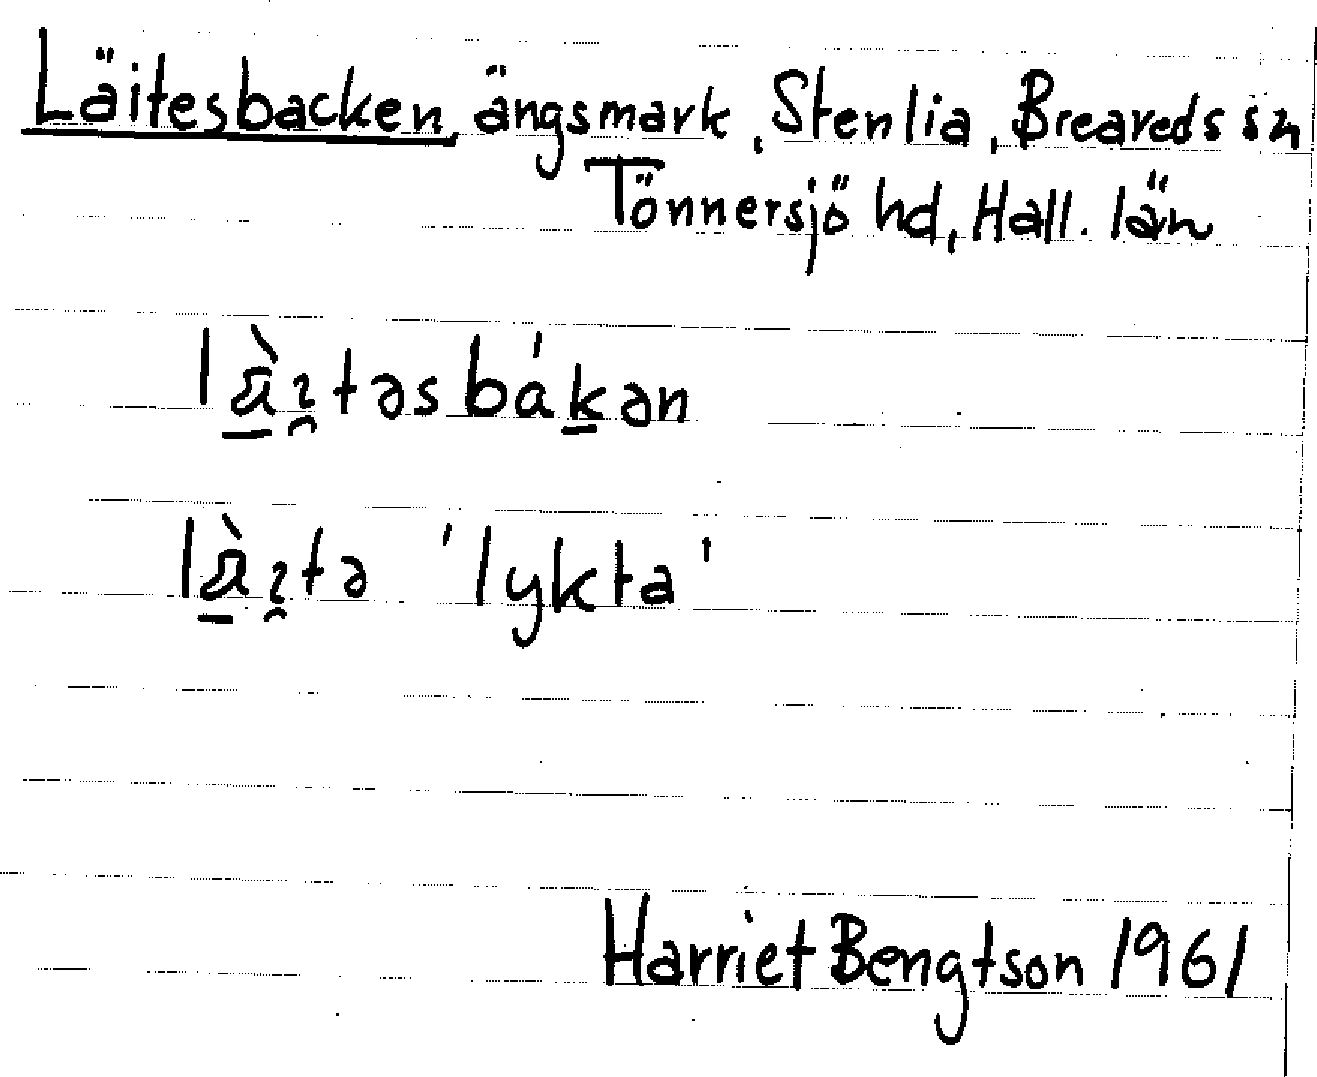 Läitesbacken, ängsmark, Stenlia, Breareds sn
Tönnersjö hd, Hall. län
lä̱̀ı̯təsbáḵən
lä̱̀ı̯tə 'lykta'
Harriet Bengtson 1961